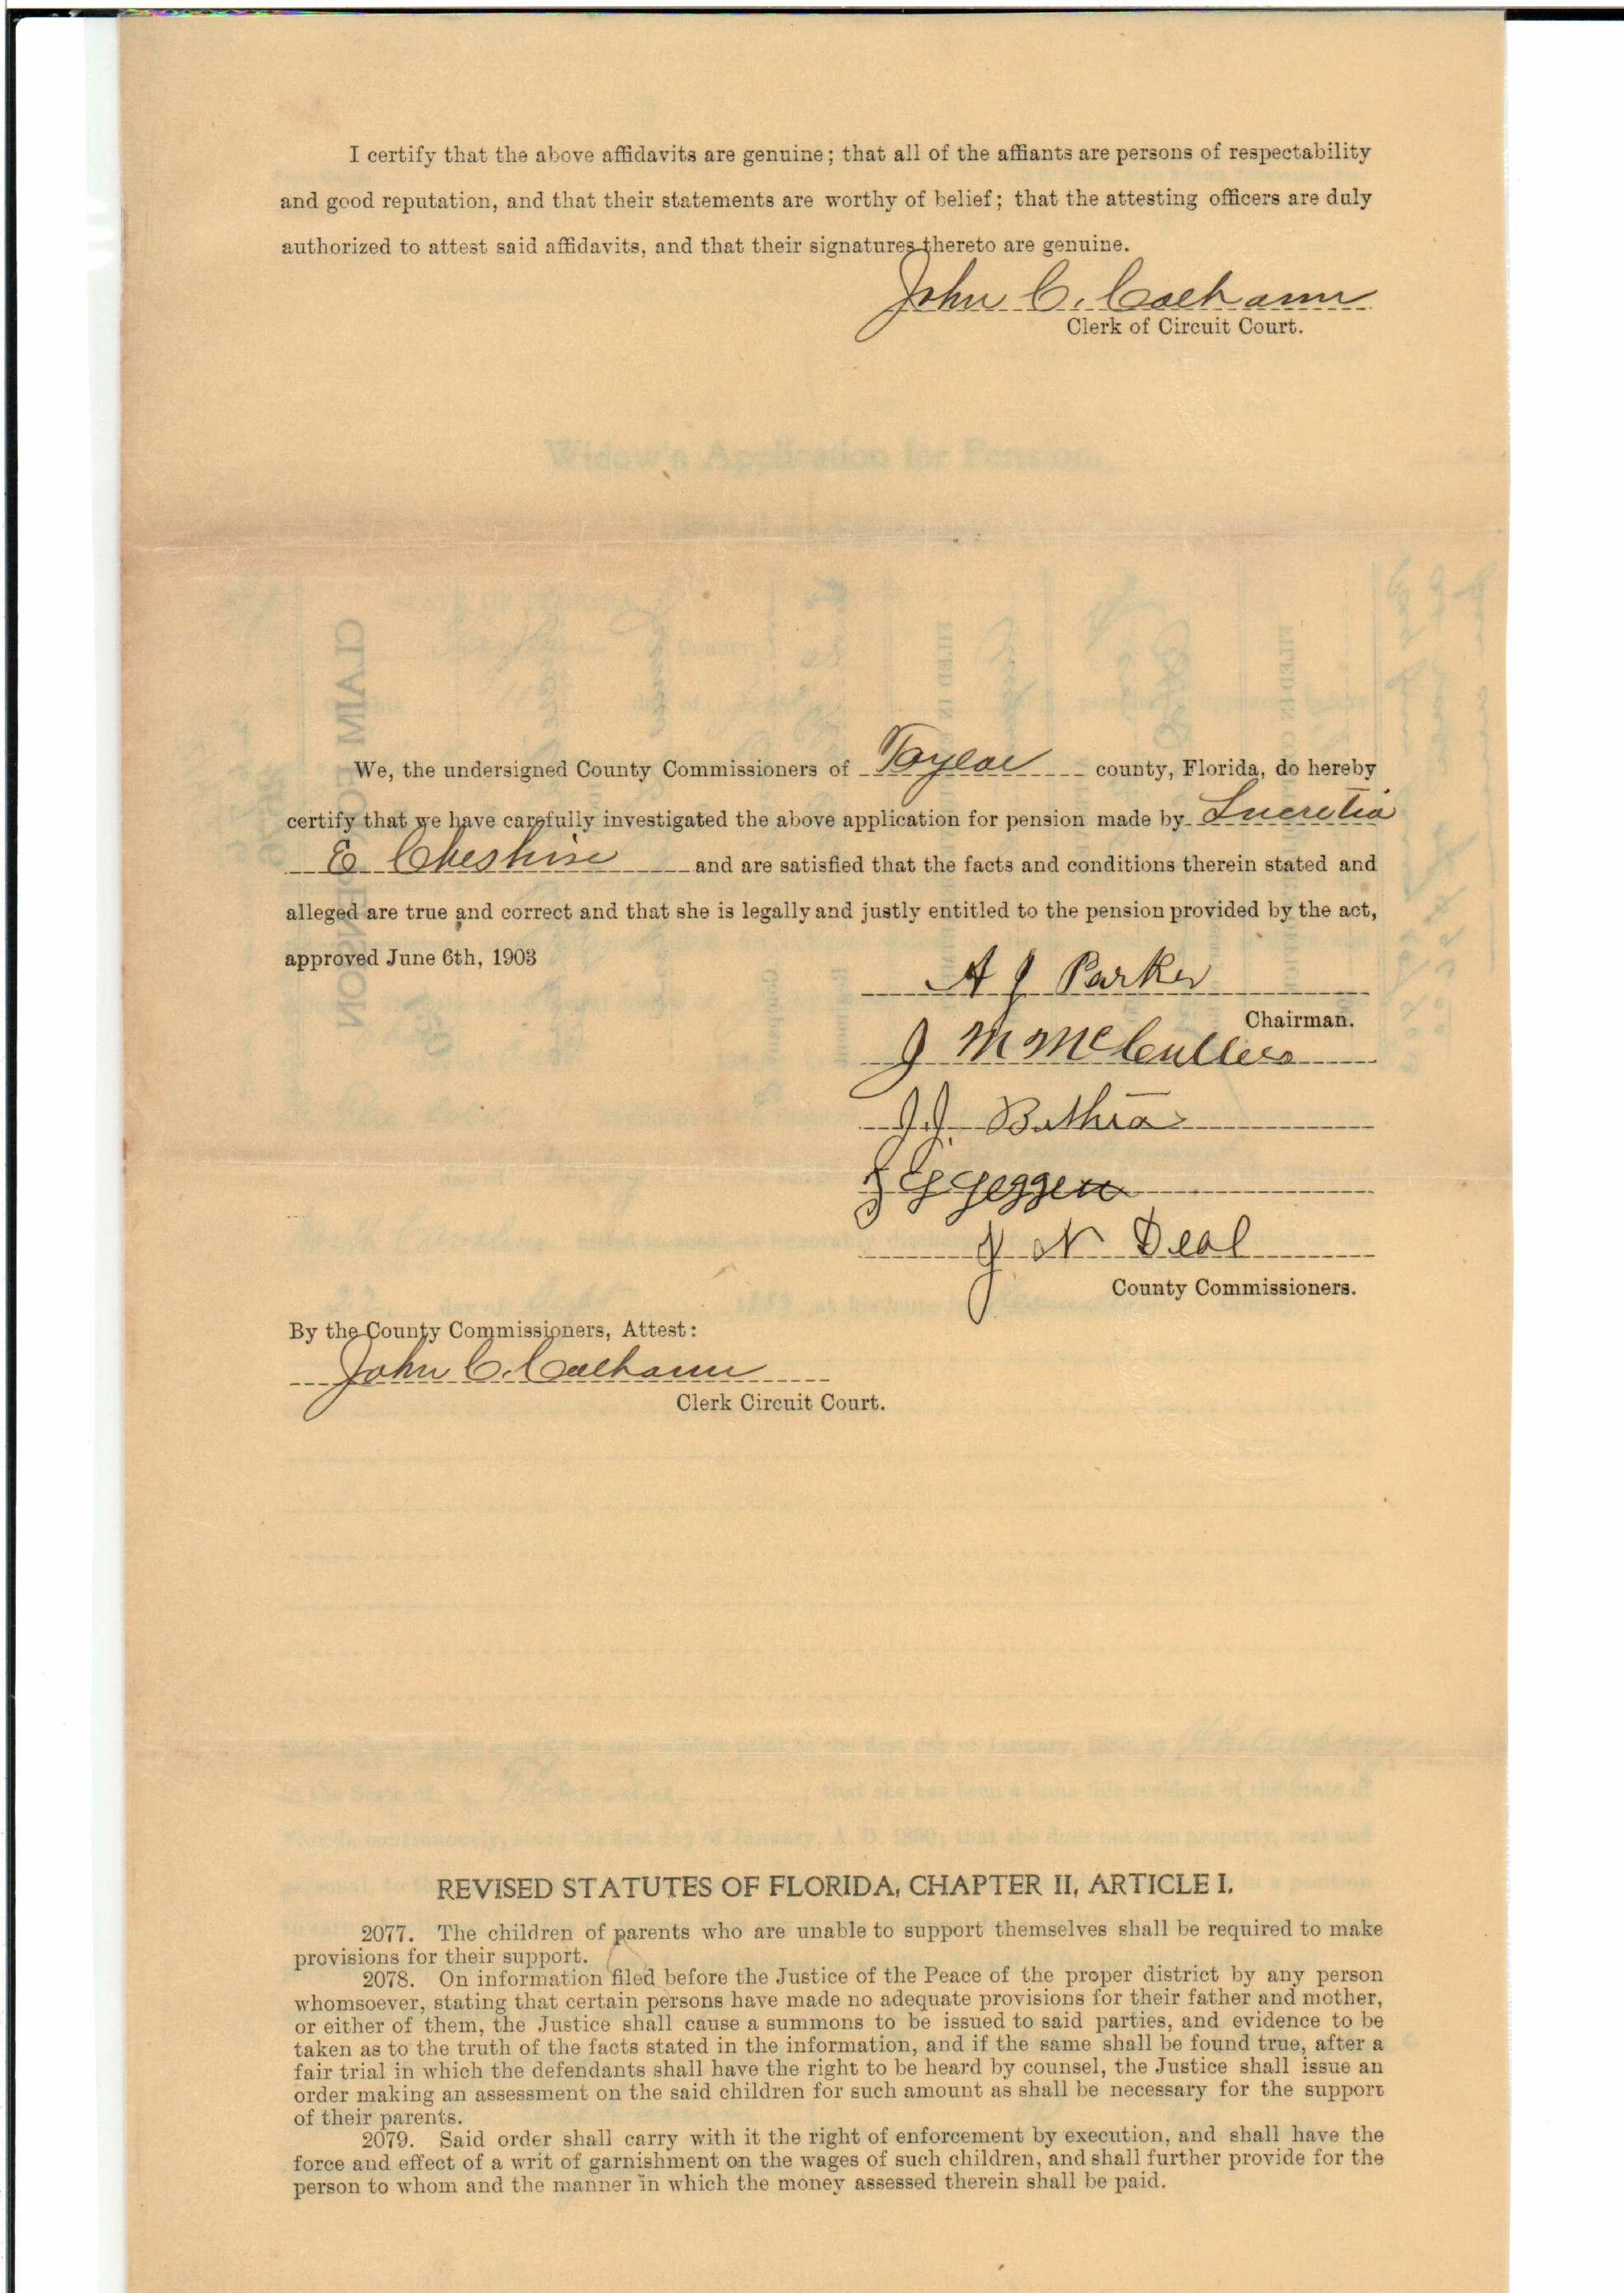 I certify that the above affidavits are genuine; that all of the affiants are persons of respectability
and good reputation, and that their statements are worthy of belief; that the attesting officers are duly
authorized to attest said affidavits, and that their signatures thereto are genuine.
John C. Calhoun
Clerk of Circuit Court.
Widow's Application for Pension.
We, the undersigned County Commissioners of Taylor county, Florida, do hereby
certify that we have carefully investigated the above application for pension made by Lucretia
E Cheshire and are satisfied that the facts and conditions therein stated and
alleged are true and correct and that she is legally and justly entitled to the pension provided by the act,
approved June 6th, 1903
A J Parker
Chairman.
J M McCullers
J. J.
J N Deal
County Commissioners.
By the County Commissioners, Attest:
John C. Calhoun
Clerk Circuit Court.
CLAIM FOR PENSION
REVISED STATUTES OF FLORIDA, CHAPTER II, ARTICLE I.
2077. The children of parents who are unable to support themselves shall be required to make
provisions for their support.
2078. On information filed before the Justice of the Peace of the proper district by any person
whomsoever, stating that certain persons have made no adequate provisions for their father and mother,
or either of them, the Justice shall cause a summons to be issued to said parties, and evidence to be
taken as to the truth of the facts stated in the information, and if the same shall be found true, after a
fair trial in which the defendants shall have the right to be heard by counsel, the Justice shall issue an
order making an assessment on the said children for such amount as shall be necessary for the support
of their parents.
2079. Said order shall carry with it the right of enforcement by execution, and shall have the
force and effect of a writ of garnishment on the wages of such children, and shall further provide for the
person to whom and the manner in which the money assessed therein shall be paid.